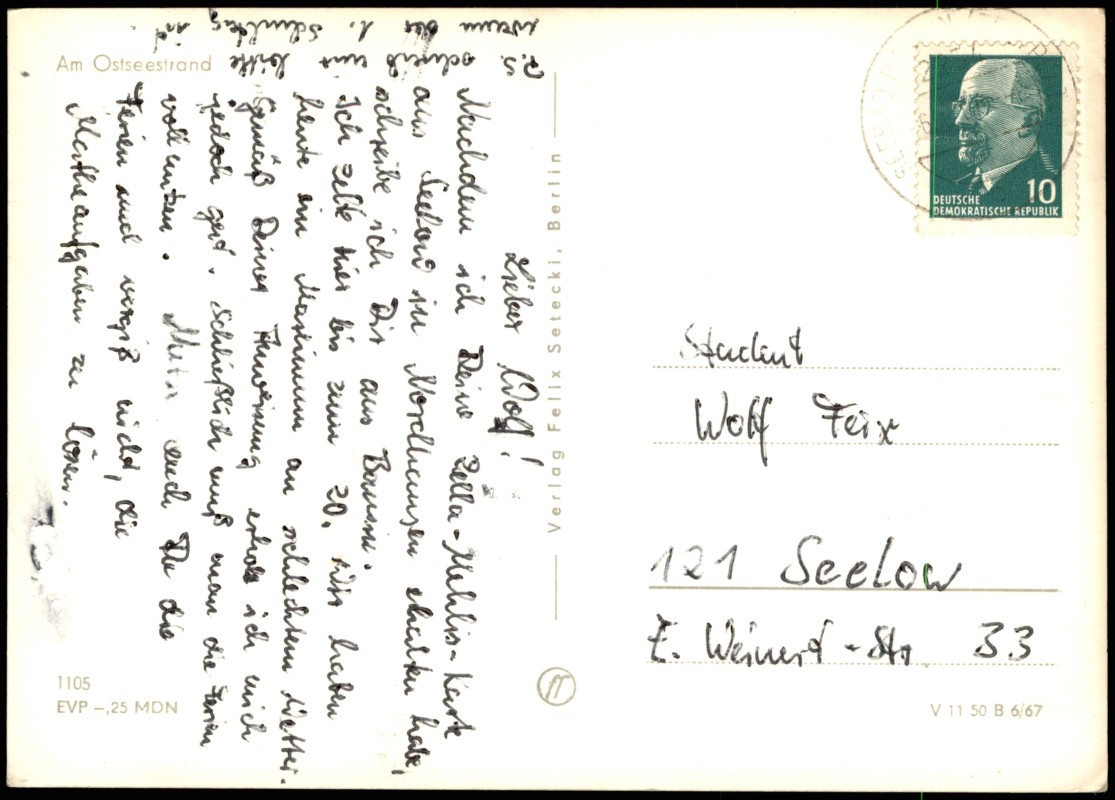 Am Ostseestrand
Lieber Wolf!
Nachdem ich Deine Zella-Mehlis-Karte
aus Seelow in Norchensen erhalten habe,
schreibe ich Dir aus Bansin.
Ich zelte hier bis zum 20. Wir haben
heute ein Maximum an schlechtem Wetter.
Gemäß Deiner Anweisung erhole ich mich
jedoch gut. Schließlich muß man die Ferien
voll nutzen. Nutz auch Du die
Ferien und vergiß nicht, die
Matheaufgaben zu lösen.
P.S. schreib mir bitte
wann der 1. Schultag ist
Verlag Felix Setecki, Berlin
DEUTSCHE
DEMOKRATISCHE REPUBLIK
10
Student
Wolf Feix
121 Seelow
E. Weinert-Str 33
1105
EVP –,25 MDN
V 11 50 B 6/67